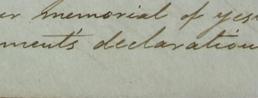 er memorial of yes
ment's declaration